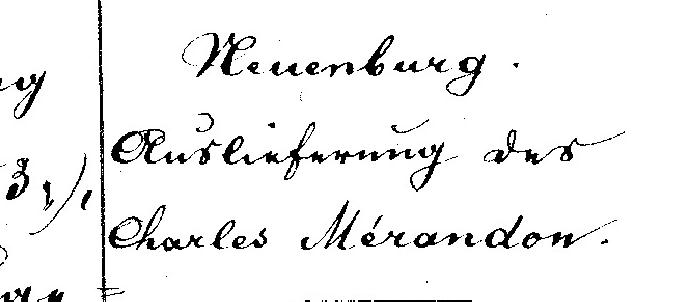 Neuenburg.
Auslieferung des
Charles Mérandon.